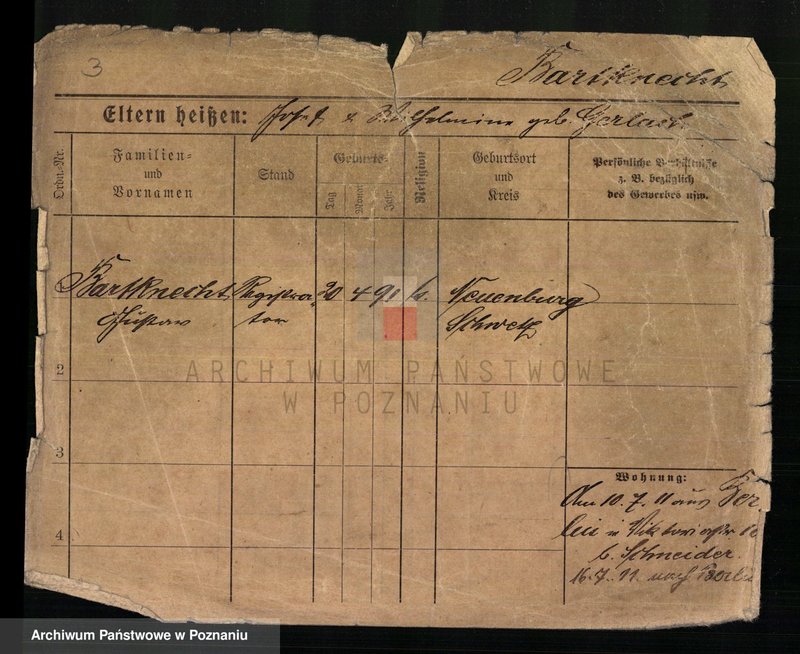 3
Bartknecht
Eltern heißen: Josef u. Wilhelmine geb. Gerlach
Ordn.-Nr.
Familien-
und
Vornamen
Stand
Geburts-
Tag
Monat
Jahr
Religion
Geburtsort
und
Kreis
Persönliche Verhältnisse
z. B. bezüglich
des Gewerbes usw.
Bartknecht Registra- 20 4 90 k. Neuenburg
Gustav tor Schwetz
2
3
4
Wohnung:
Am 10. 7. 11 aus Ber
lin in Viktoriastr
b. Schneider
16. 7. 11. nach Berlin
ARCHIWUM PAŃSTWOWE
W POZNANIU
Archiwum Państwowe w Poznaniu